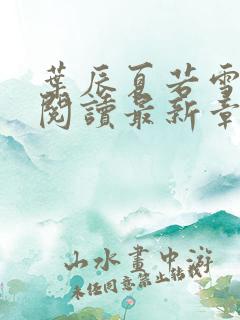 葉辰夏若雪
閱讀最新章
山水畫中游
未經同意禁止轉載